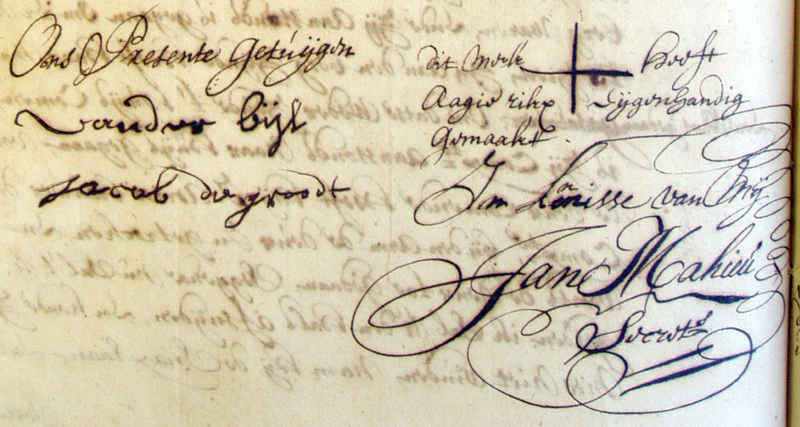 Ons Presente Getuijgen
vander bijl
Jacob de groodt
dit merk + heeft
Aagie eijgenhandig
Gemaakt.
In kennisse van Mij
Jan Mahieu
Secrets